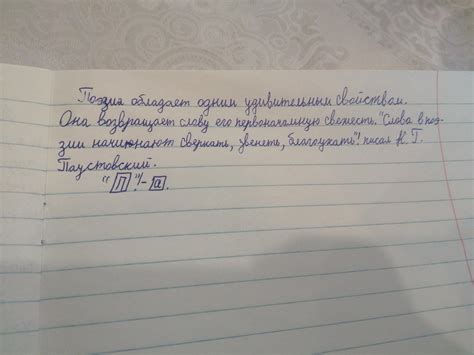 Поэзия обладает одним удивительным свойством.
Она возвращает слову его первоначальную свежесть. "Слова в поэ-
зии начинают сверкать, звенеть, благоухать"! писал К. Г.
Паустовский.
"П!"- а.